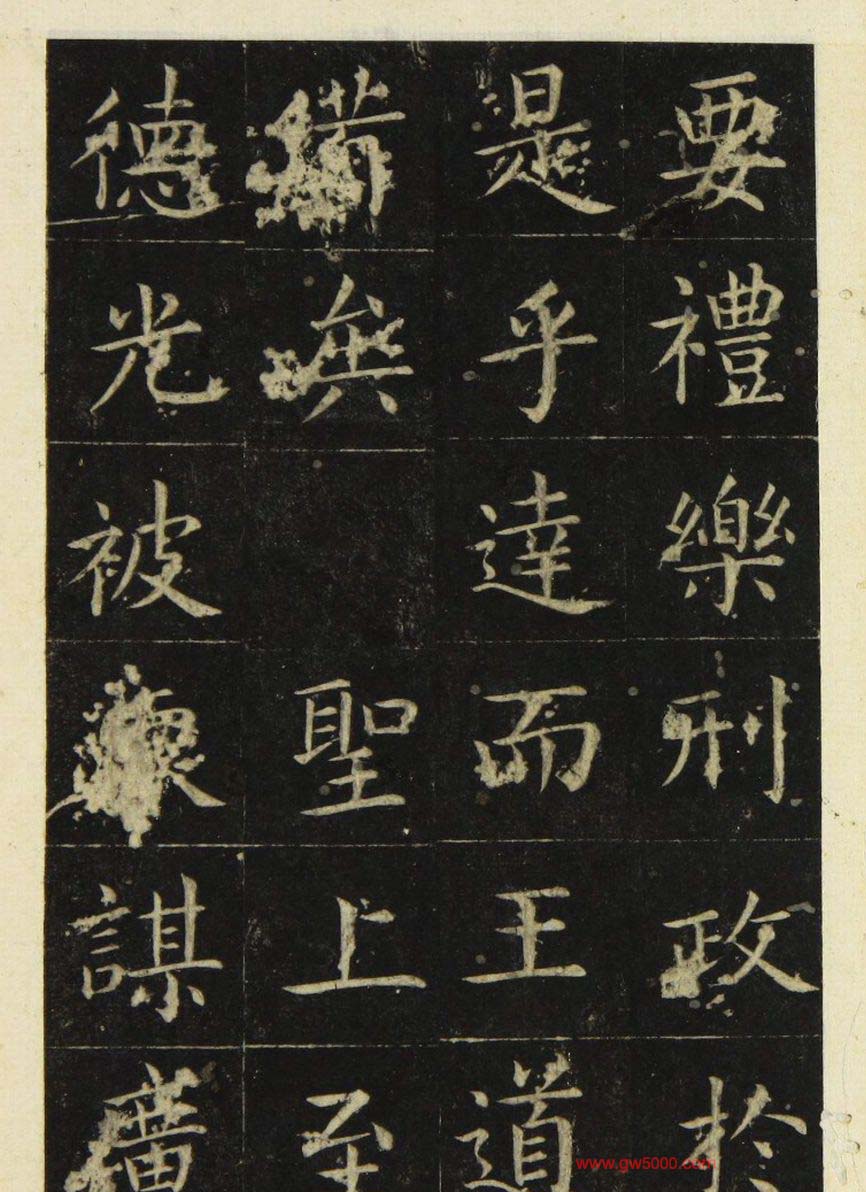 要禮樂刑政於
是乎達而王道
備矣 聖上至
德光被謀廣
www.gw5000.com